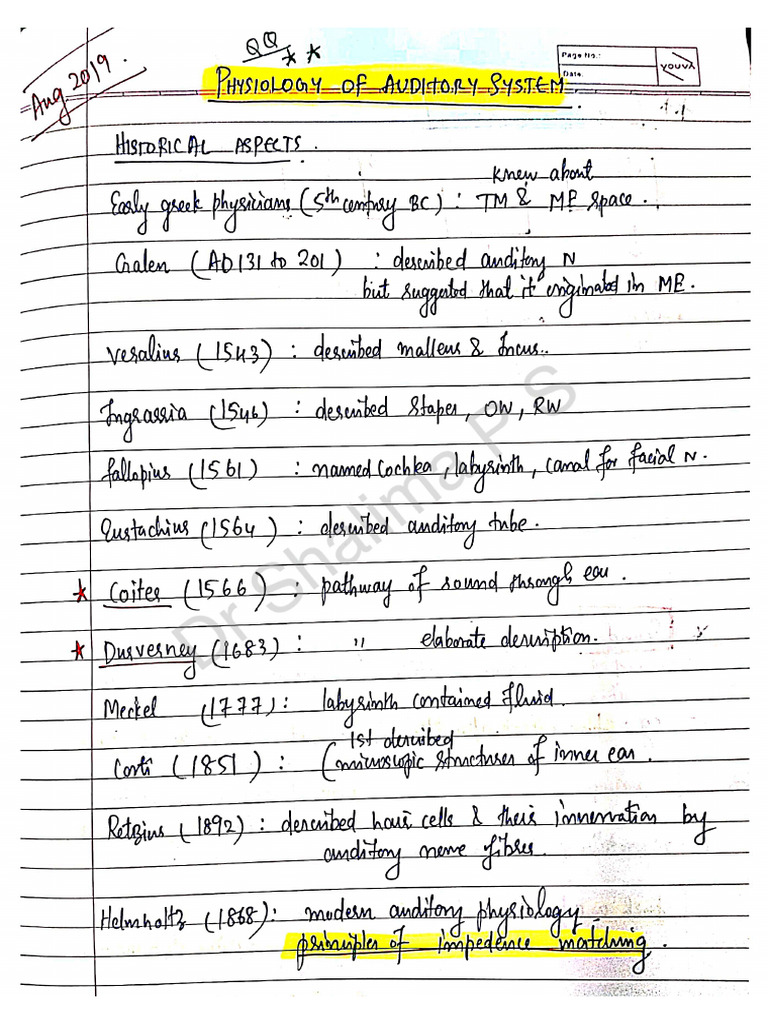 QQ
* *
Aug 2019
Page No.:
Date:
YOUVA
PHYSIOLOGY OF AUDITORY SYSTEM.
HISTORICAL ASPECTS.
knew about
Early greek physicians (5th century BC) : TM & ME space.
Galen (AD 131 to 201) : described auditory N
but suggested that it originated in ME.
Vesalius (1543) : described malleus & Incus..
Ingrassia (1546) : described Stapes, OW, RW
Fallopius (1561) : named Cochlea, labyrinth, canal for facial N.
Eustachius (1564) : described auditory tube.
* Coiter (1566) : pathway of sound through ear.
* Durverney (1683) : " elaborate description.
Meckel (1777) : labyrinth contained fluid.
1st described
Corti (1851) : (microscopic structures of inner ear.
Retzius (1892) : described hair cells & their innervation by
auditory nerve fibres.
Helmholtz (1868) : modern auditory physiology.
principles of impedence matching.
Dr Shalima P S